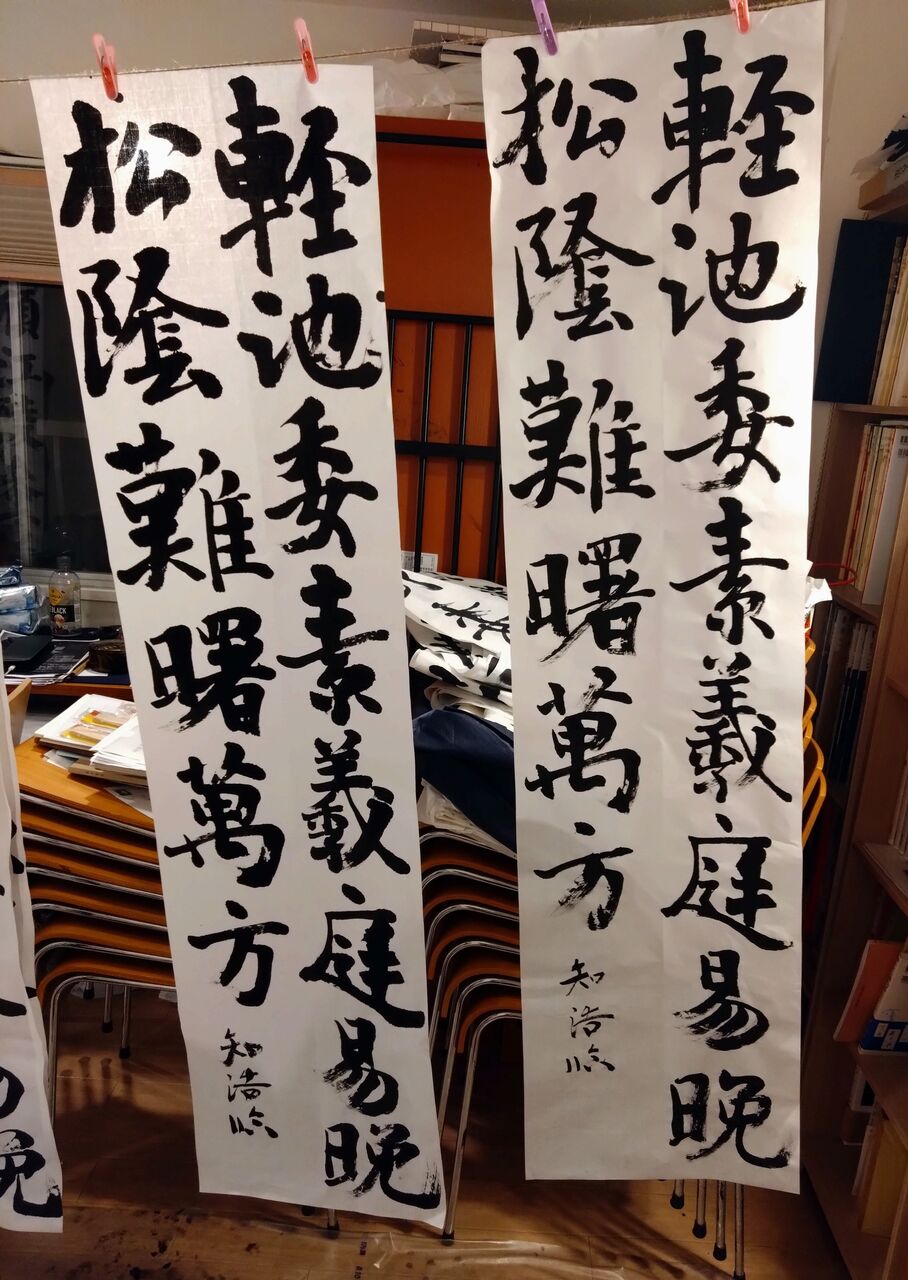 輕池委素羲庭易晚
松陰難曙萬方
知浩臨
輕池委素羲庭易晚
松陰難曙萬方
知浩臨
BLACK